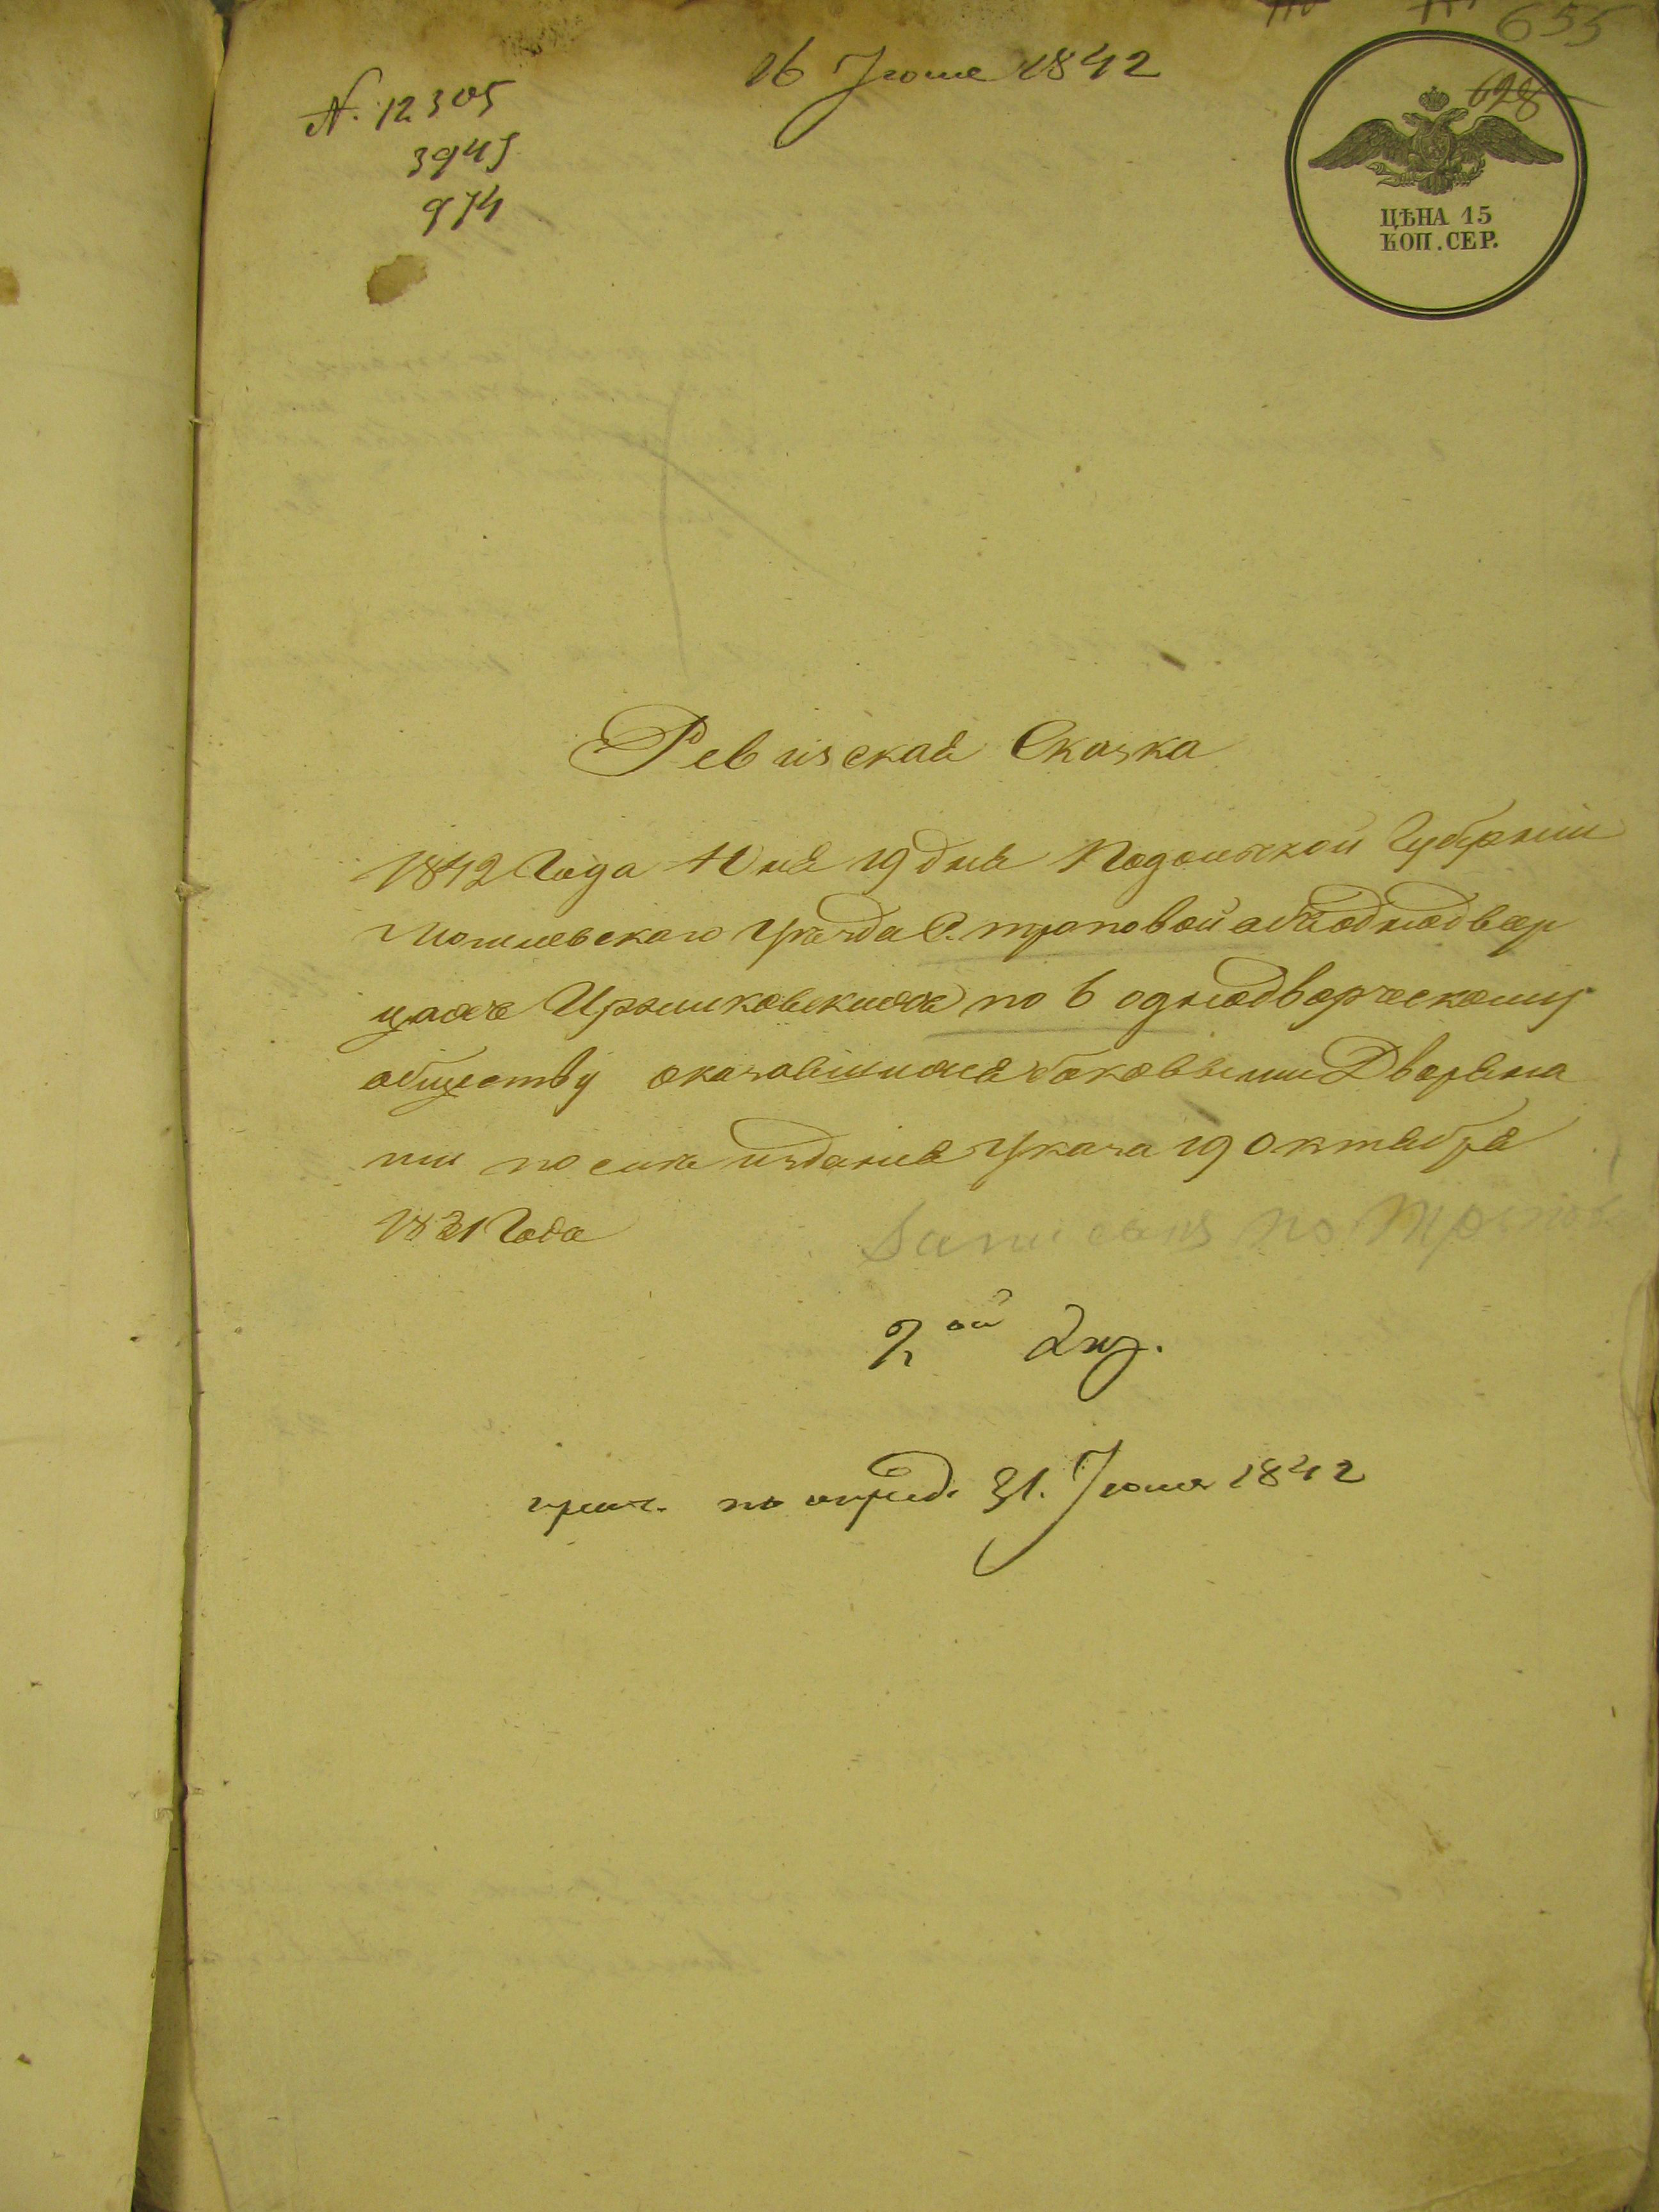 655
16 Июля 1842
N. 12305
3945
974
628
ЦѢНА 15
КОП. СЕР.
Ревизская Сказка
1842 Года Июня 19 дня Подольской Губерніи
Могилевского Уѣзда С. троповой объ однодвор
цахъ по 6 однодворческому
обществу оказавшимся таковыми Дворяна
ми по силѣ изданія Указа 19 Октября
1831 Года
Записанъ по
2ой Экз.
по опред. 31. Июля 1842